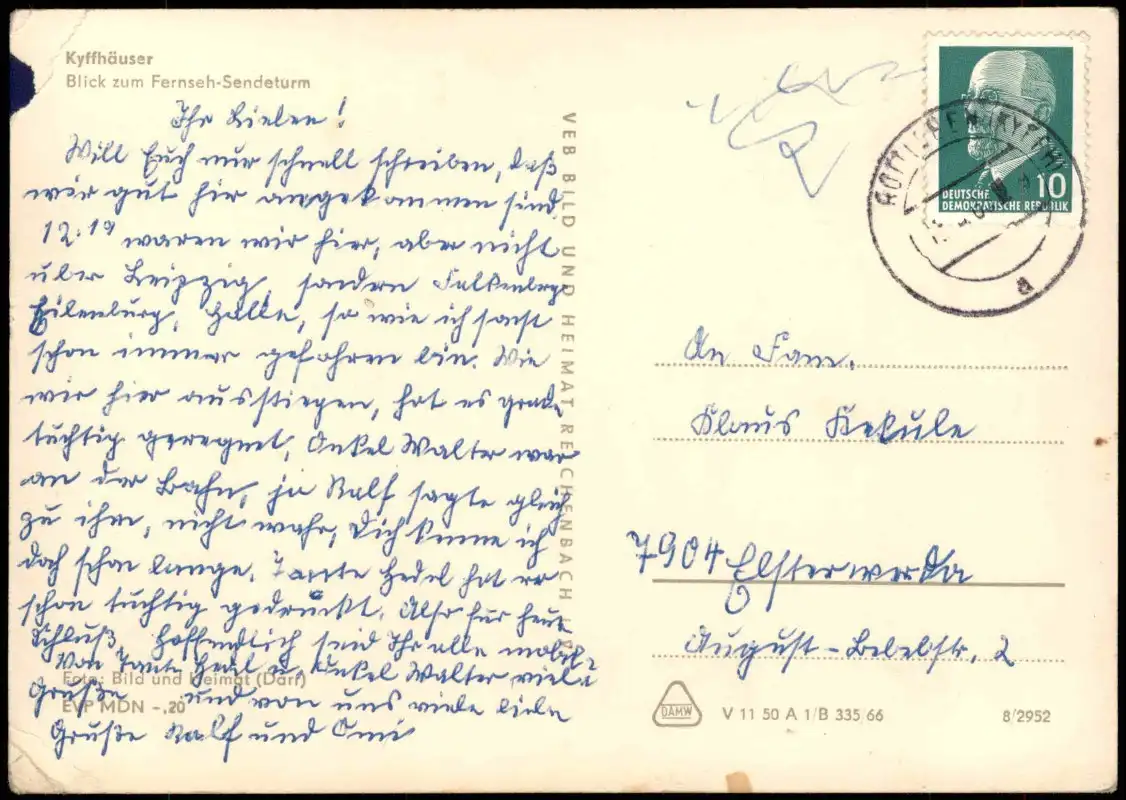 Kyffhäuser
Blick zum Fernseh-Sendeturm
Ihr Lieben!
Will Euch nur schnell schreiben, daß
wir gut hir angekommen sind
12.19 waren wir hier, aber nicht
über Leipzig, sondern Falkenberg
Eilenburg, Halle, so wie ich sonst
schon immer gefahren bin. Wie
wir hier ausstiegen, hat es grade
tüchtig geregnet, Onkel Walter war
an der Bahn, ja Ralf sagte gleich
zu ihm, nicht wahr, Dich kenne ich
doch schon lange. Tante Hedel hat er
schon tüchtig gedrückt. Also für heut
Schluß, hoffendlich seid Ihr alle mobil?
Von Tante Hedl u. Onkel Walter viele
Grüße und von uns viele liebe
Grüße Ralf und Omi
Foto: Bild und Heimat (Darr)
EVP MDN -,20
VEB BILD UND HEIMAT REICHENBACH
DEUTSCHE
DEMOKRATISCHE REPUBLIK
10
ROTTLEBEN (KYFFH)
a
An Fam.
Klaus Kekule
7904 Elsterwerda
August-Bebelstr. 2
DAMW
V 11 50 A 1/B 335/66
8/2952